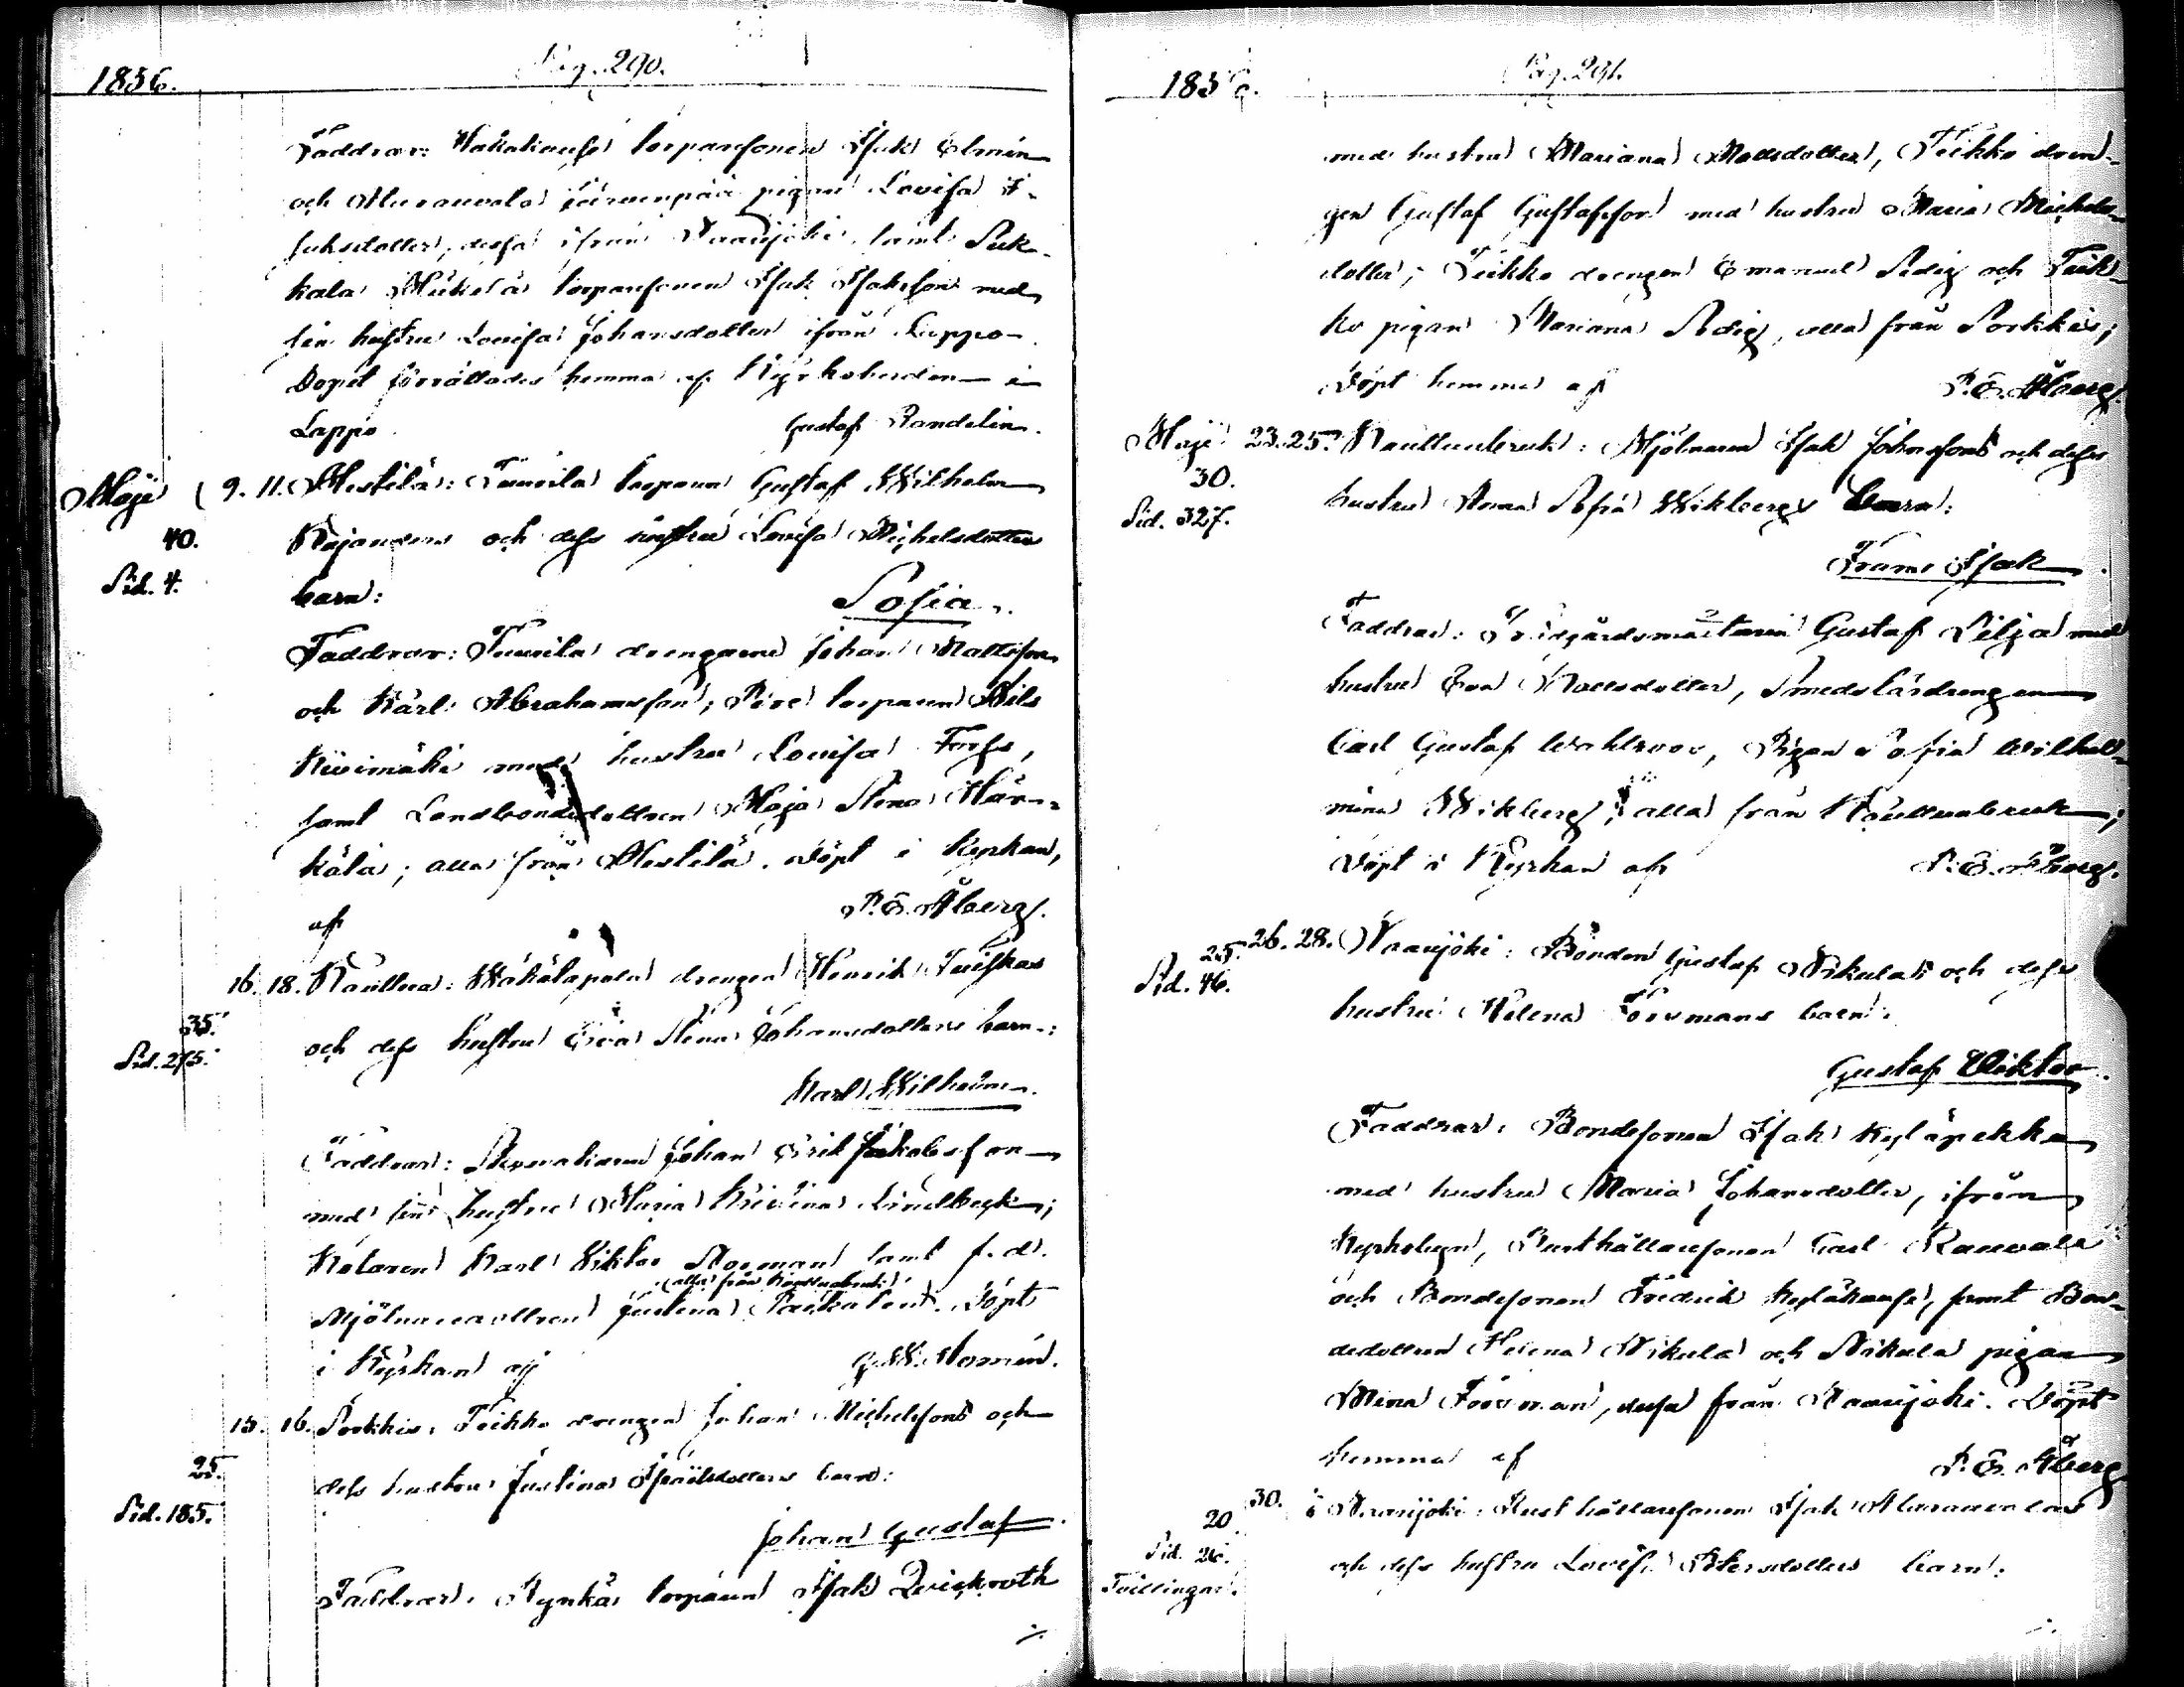 1856.
Pag. 290.
Faddrar: torparesonen Isak Elmén
och järvenpää pigan Lovisa I-
saksdotter, dessa ifrån Naarijoki, samt Suk-
kala Mäkelä torparesonen Isak Isaksson med
sin hustru Lovisa Johansdotter ifrån Lappo.
Dopet förrättades hemma af Kyrkoherden i
Lappo. Gustaf Randelin.
Maji 9. 11. Mestilä: Tuurila torparen Gustaf Wilhelm
40. Kajanders och dess hustru Lovisa Michelsdotters
Sid. 4. barn:
Sofia.
Faddrar: Tuurila drengarne Johan Mattsson
och Karl Abrahamsson; torparen Nils
Kivimäki med hustru Lovisa Forss,
samt Landbondedottren Maja Stina
; alla från Mestilä. Döpt i Kyrkan,
af P. E. Åberg.
16. 18. Kauttua: drengen Henrik
35. och dess hustru Eva Stina Johansdotters barn:
Sid. 275.
Karl Wilhelm.
Faddrar: Johan Erik Jakobsson
med sin hustru Maria Lindbeck;
Kolaren Karl Viktor Norman samt f. d.
(alla från Kauttuabruk)
Mjölnaredottren Justina. Döpt
i Kyrkan af G. W. Homén.
15. 16. Sorkkis: Teikko drengen Johan Michelssons och
25. dess hustru Justina barn:
Sid. 185.
Johan Gustaf.
Faddrar: torparen Isak Qvickroth
./.
1856.
Pag. 291.
med hustru Mariana Mattsdotter, Teikko dren-
gen Gustaf Gustafsson med hustru Maria Michels-
dotter; Teikko drengen Emanuel Sedig och Teik-
ko pigan Mariana Sedig, alla från Sorkkis;
Döpt hemma af P. E. Åberg.
Maji 23. 25. Kauttuabruk: Mjölnaren Isak Johnssons och dess
30. hustru Anna Sofia Wikbergs barn:
Sid. 327.
Frans Isak.
Faddrar: Trädgårdsmästaren Gustaf Silja med
hustru Eva Mattsdotter, Smedslärdrengen
Carl Gustaf Wahlroos, Pigan Sofia Wilhel-
mina Wikberg; alla från Kauttuabruk;
Döpt i Kyrkan af P. E. Åberg.
25. 26. 28. Naarijoki: Bonden Gustaf Nikulas och dess
Sid. 46. hustru Helena Foormans barn:
Gustaf Viktor.
Faddrar: Bondesonen Isak Kyläpekka
med hustru Maria Johansdotter, ifrån
Kyrkobyn, Rusthållaresonen Carl Rauvala
och Bondesonen Fredrik, samt Bon-
dedottren Helena Nikula och Nikula pigan
Mina Foorman, dessa från Naarijoki. Döpt
hemma af P. E. Åberg
30. Naarijoki: Rusthållaresonen Isak
20
Sid. 26. och dess hustru Lovisa Petersdotters barn:
Tvillingar.
./.